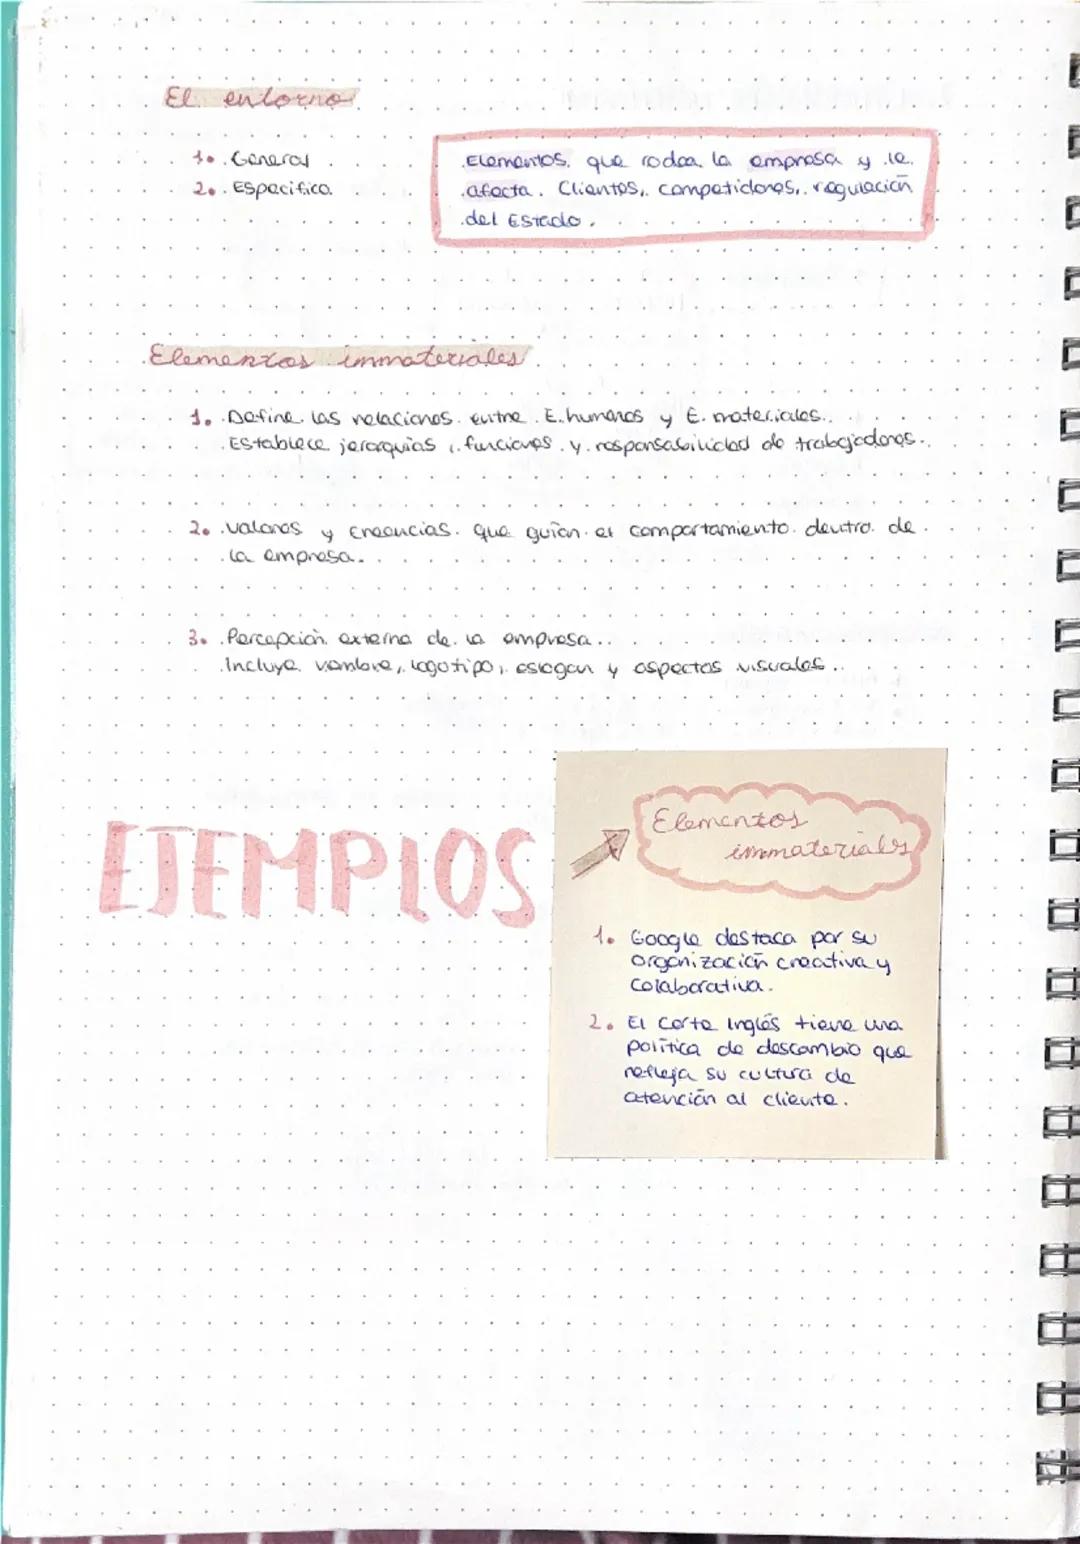 El entorno
1. General
2. Específico
Elementos que rodea la empresa y le
afecta. Clientes, competidores, regulación
del Estado.
Elementos inmateriales
1. Define las relaciones entre E. humanos y E. materiales.
Establece jerarquías, funciones y responsabilidad de trabajadores.
2. Valores y creencias que guían el comportamiento dentro de
la empresa.
3. Percepción externa de la empresa.
Incluye nombre, logotipo, eslogan y aspectos visuales.
EJEMPLOS
Elementos
inmateriales
1. Google destaca por su
organización creativa y
colaborativa.
2. El Corte Inglés tiene una
política de descambio que
refleja su cultura de
atención al cliente.